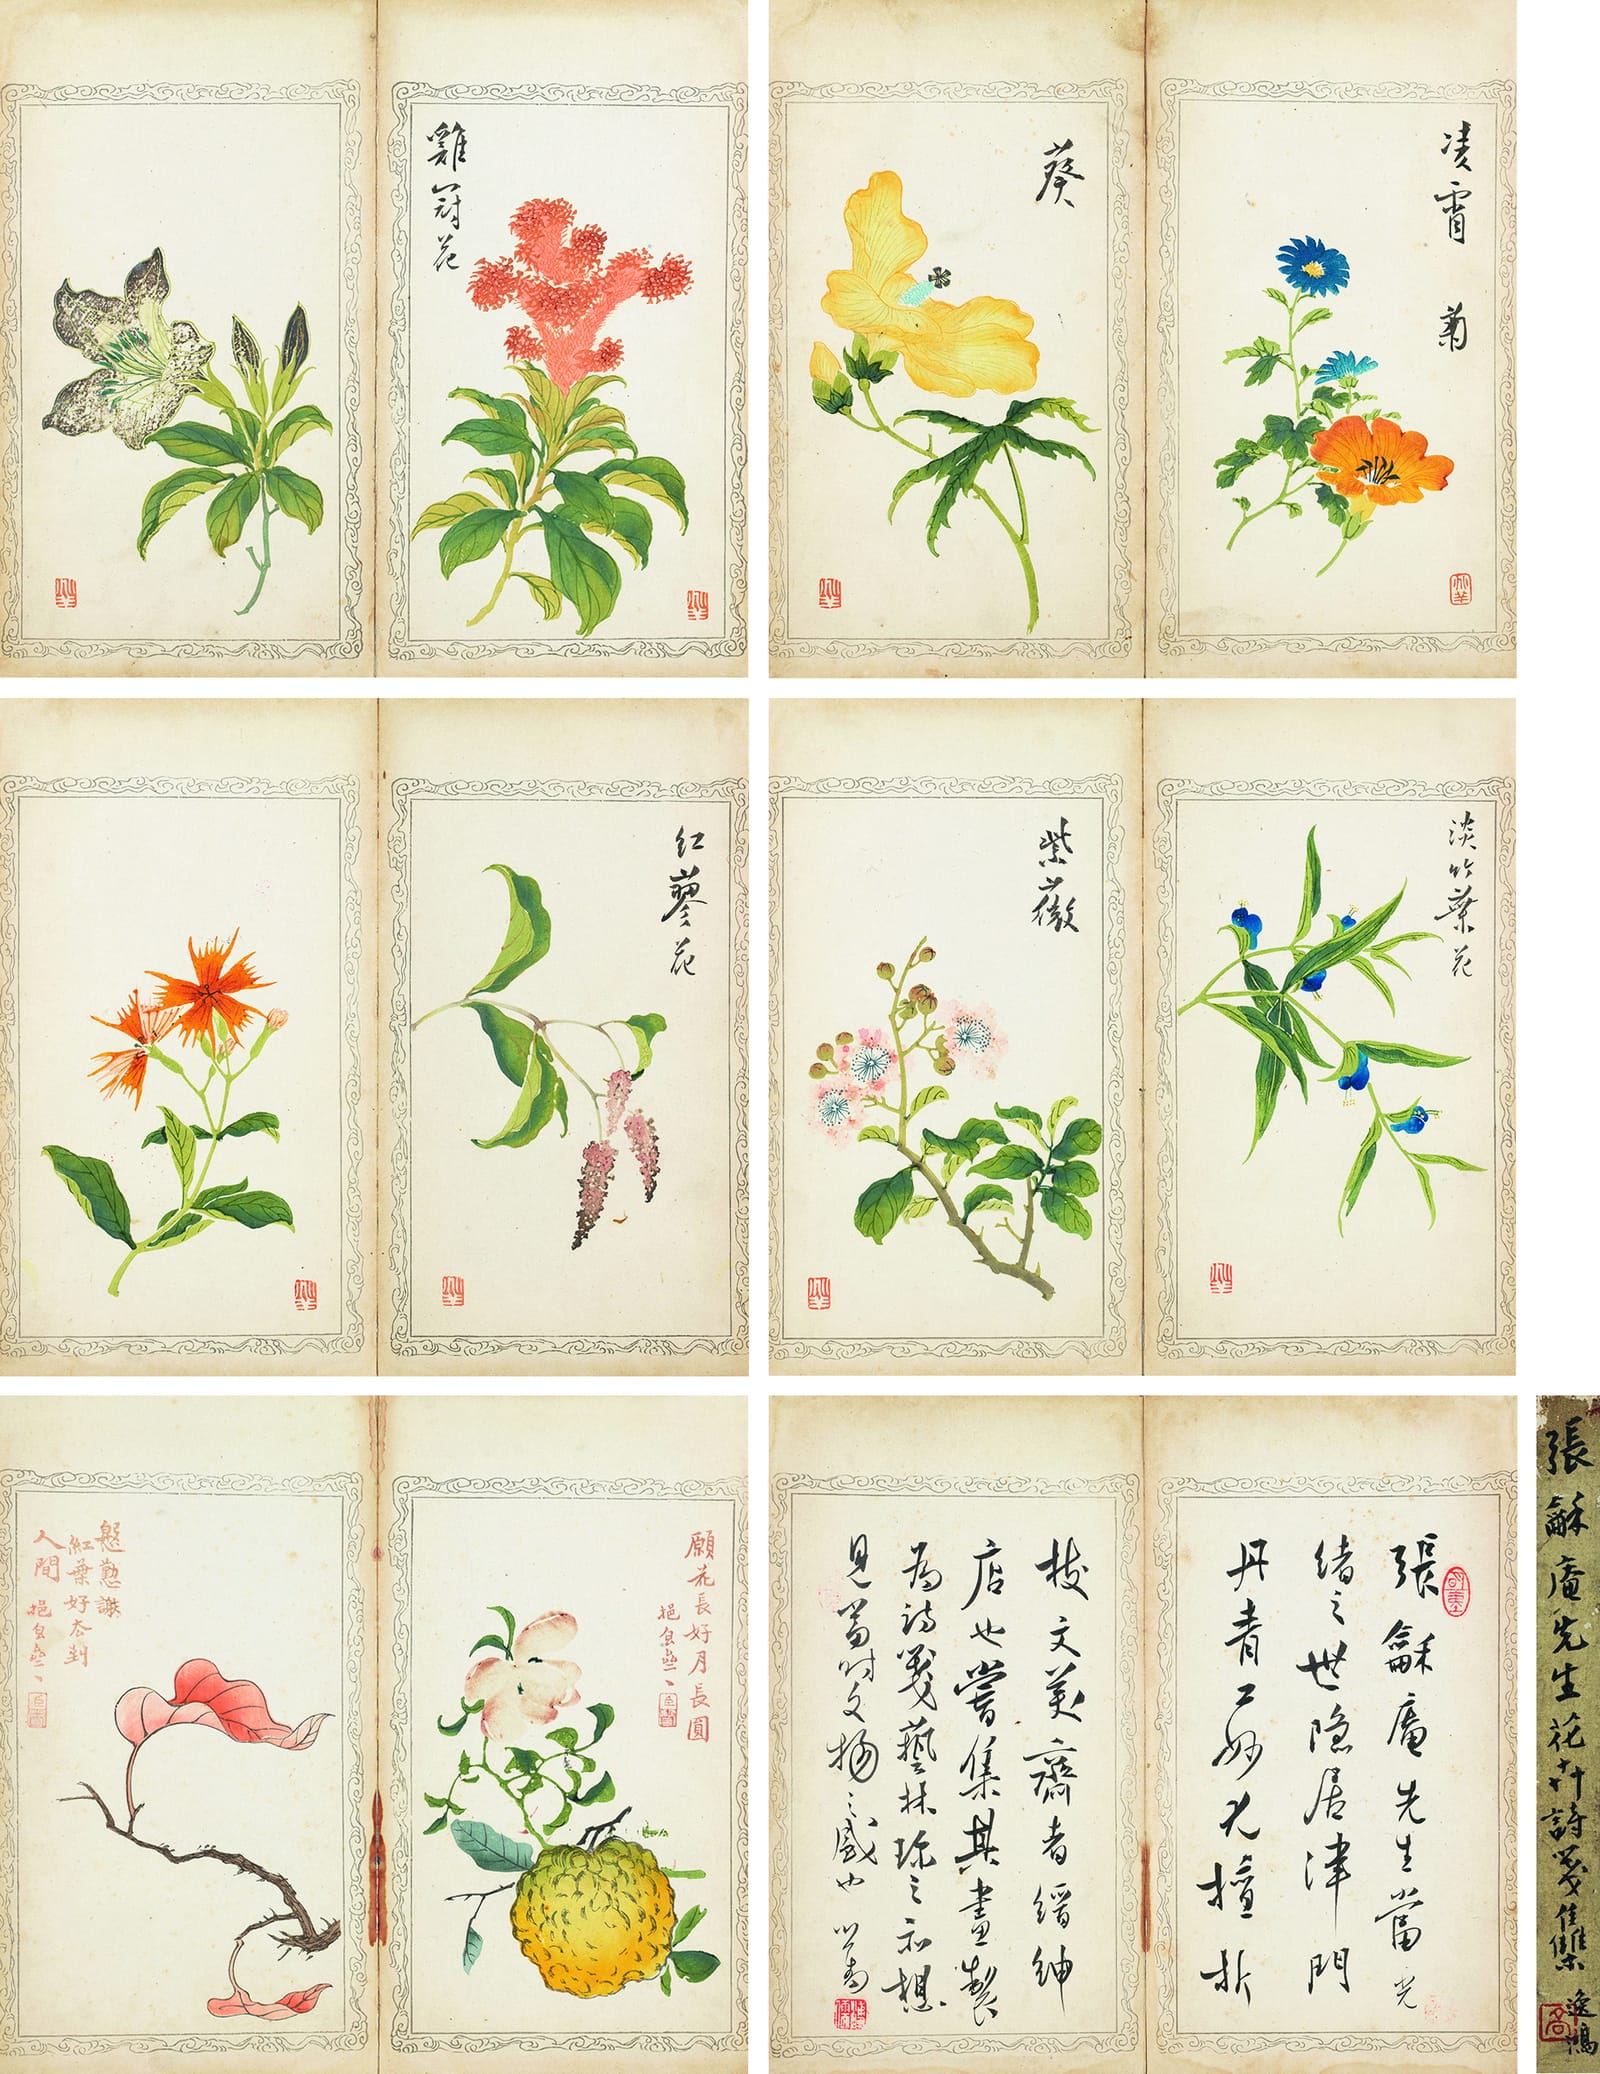 雞冠花
葵
凌霄 菊
红蓼花
紫薇
淡竹葉花
慇懃謝
紅葉好去到
人間
願花長好月長圓
張龢庵先生當光
緒之世隐居津門
丹青工妙尤擅折
枝文美齋者縉紳
店也嘗集其畫製
為詩箋藝林珍之想
見當時文物之盛也 心畬
張龢庵先生花卉詩箋集 逸鴻